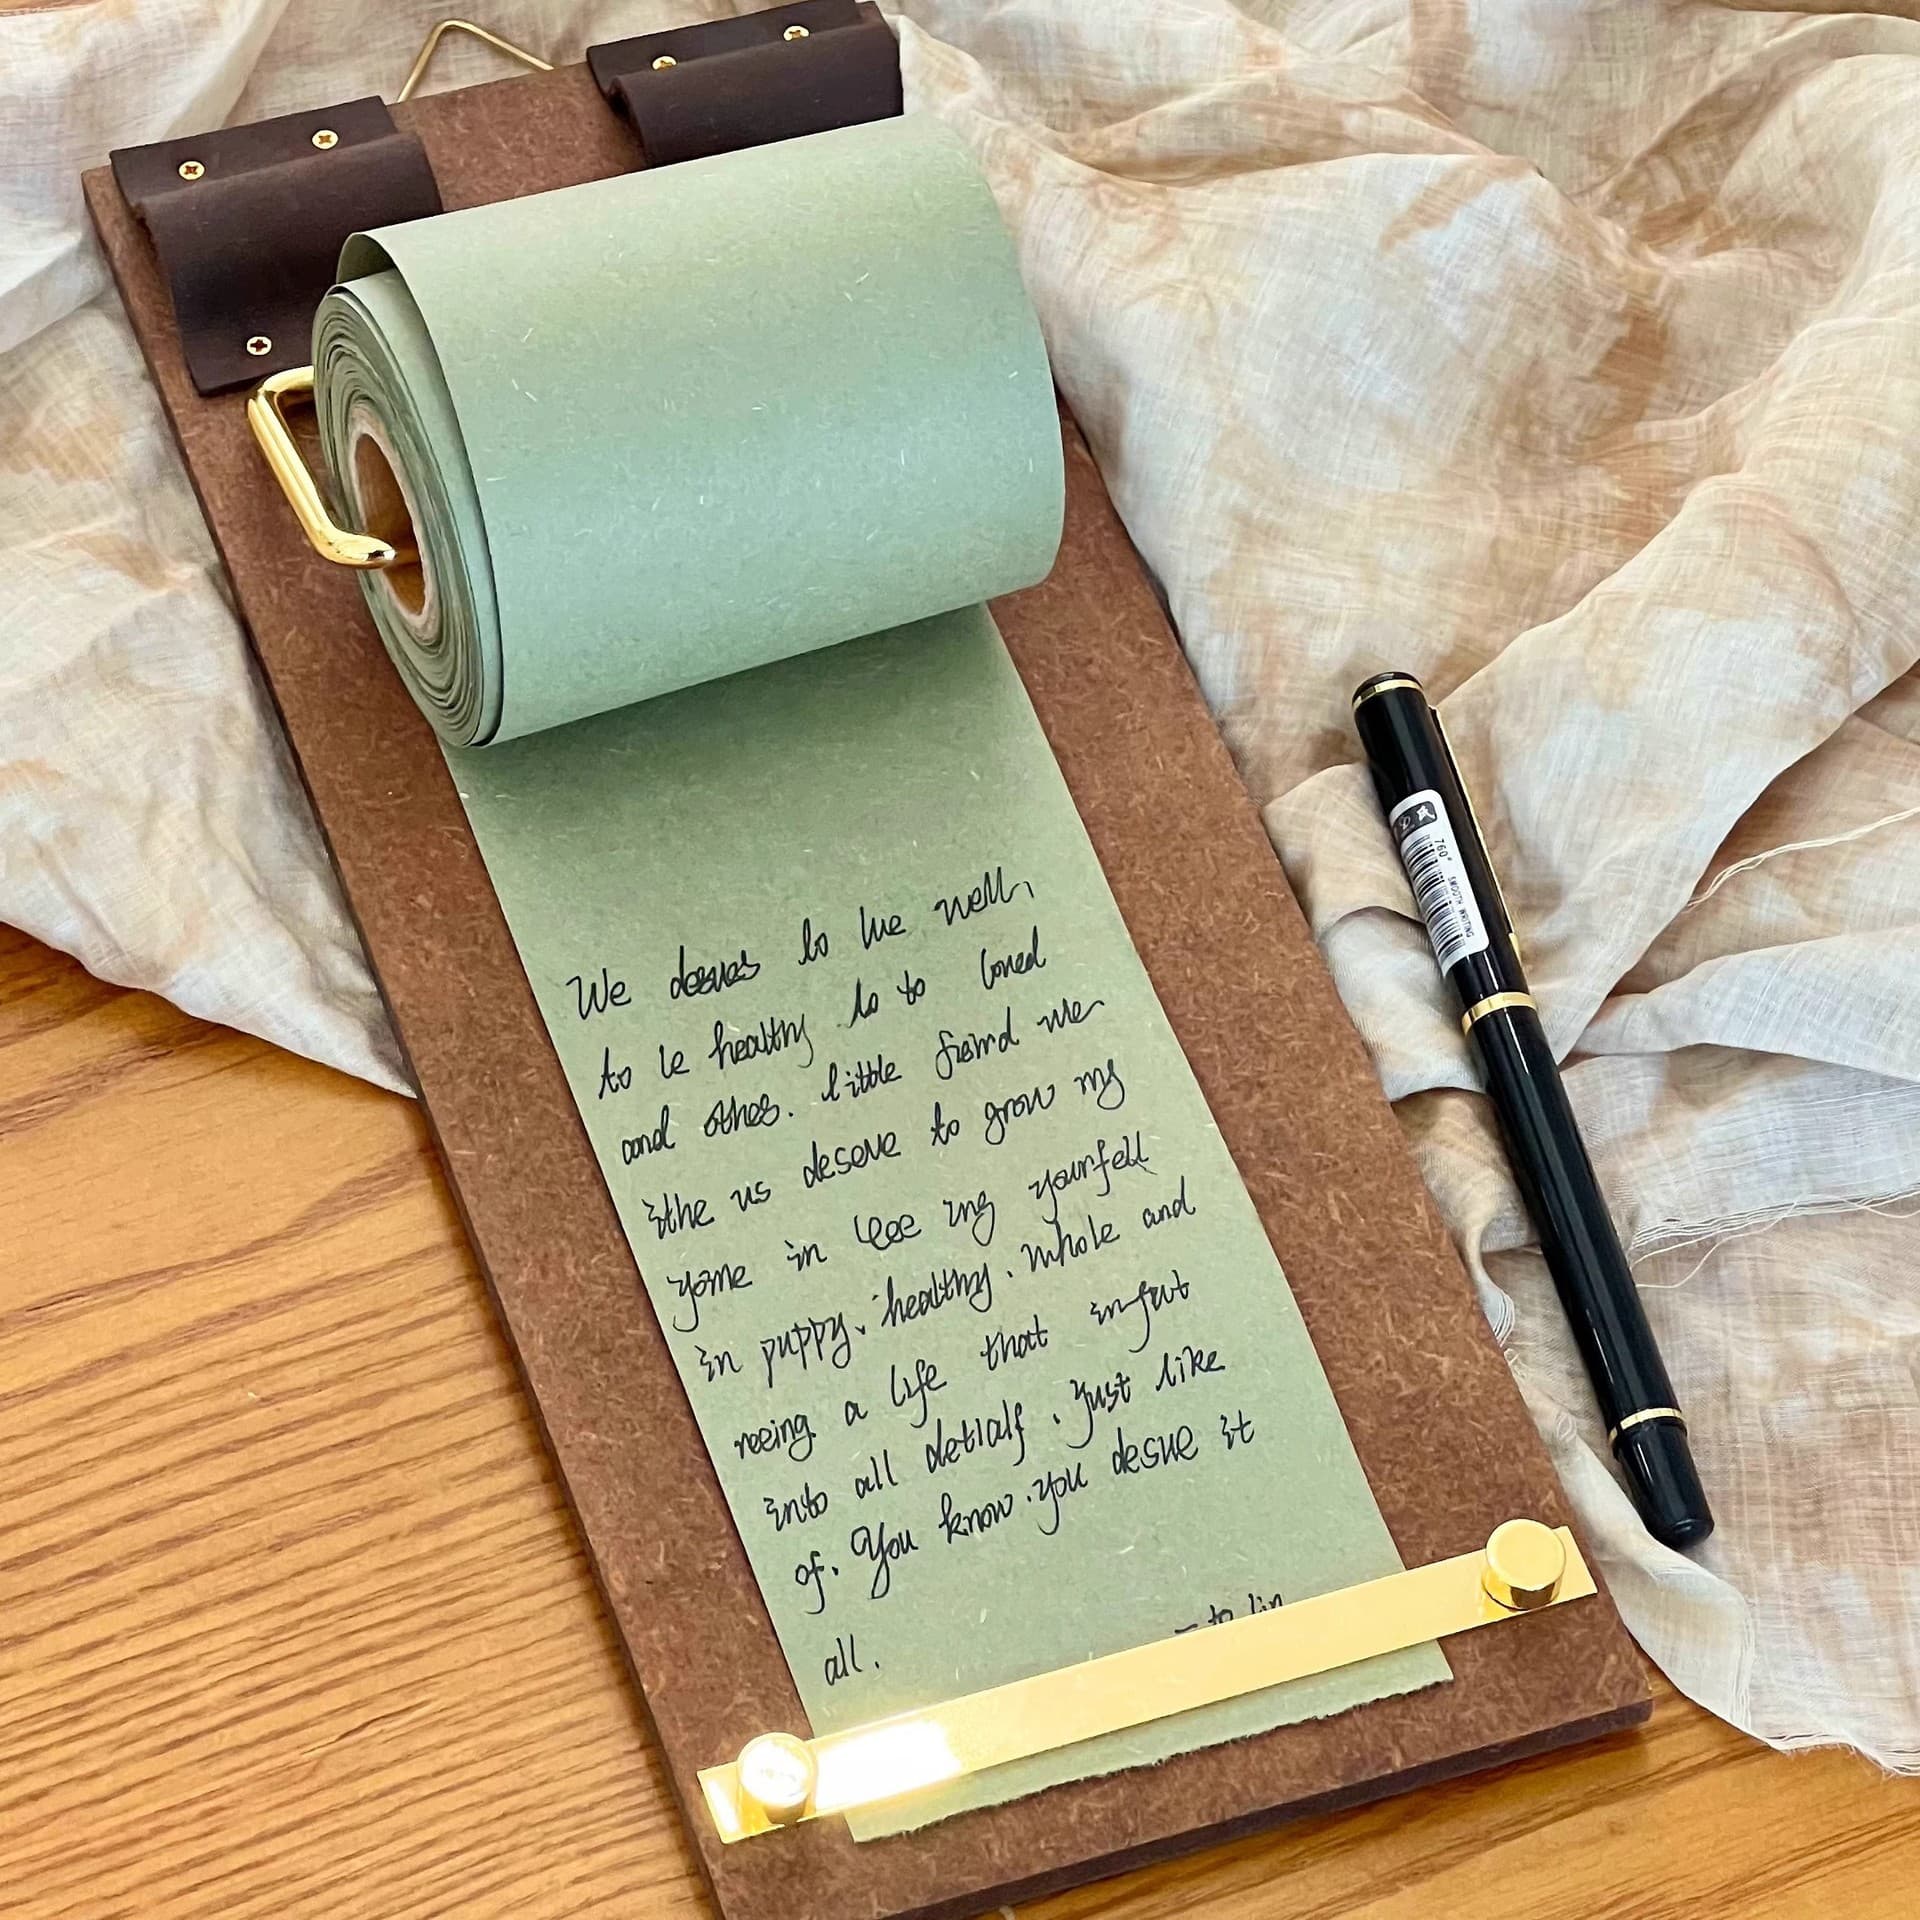 We deserves to live well,
to le healthy to to loved
and othes. little freind we
ithe us deseve to grow my
yome in ing yourfell
in puppy. healthy. whole and
reeing a life that
into all detialf. just like
of. You know. you desue it
all.
- to lin
760°
SMOOTH WRITING